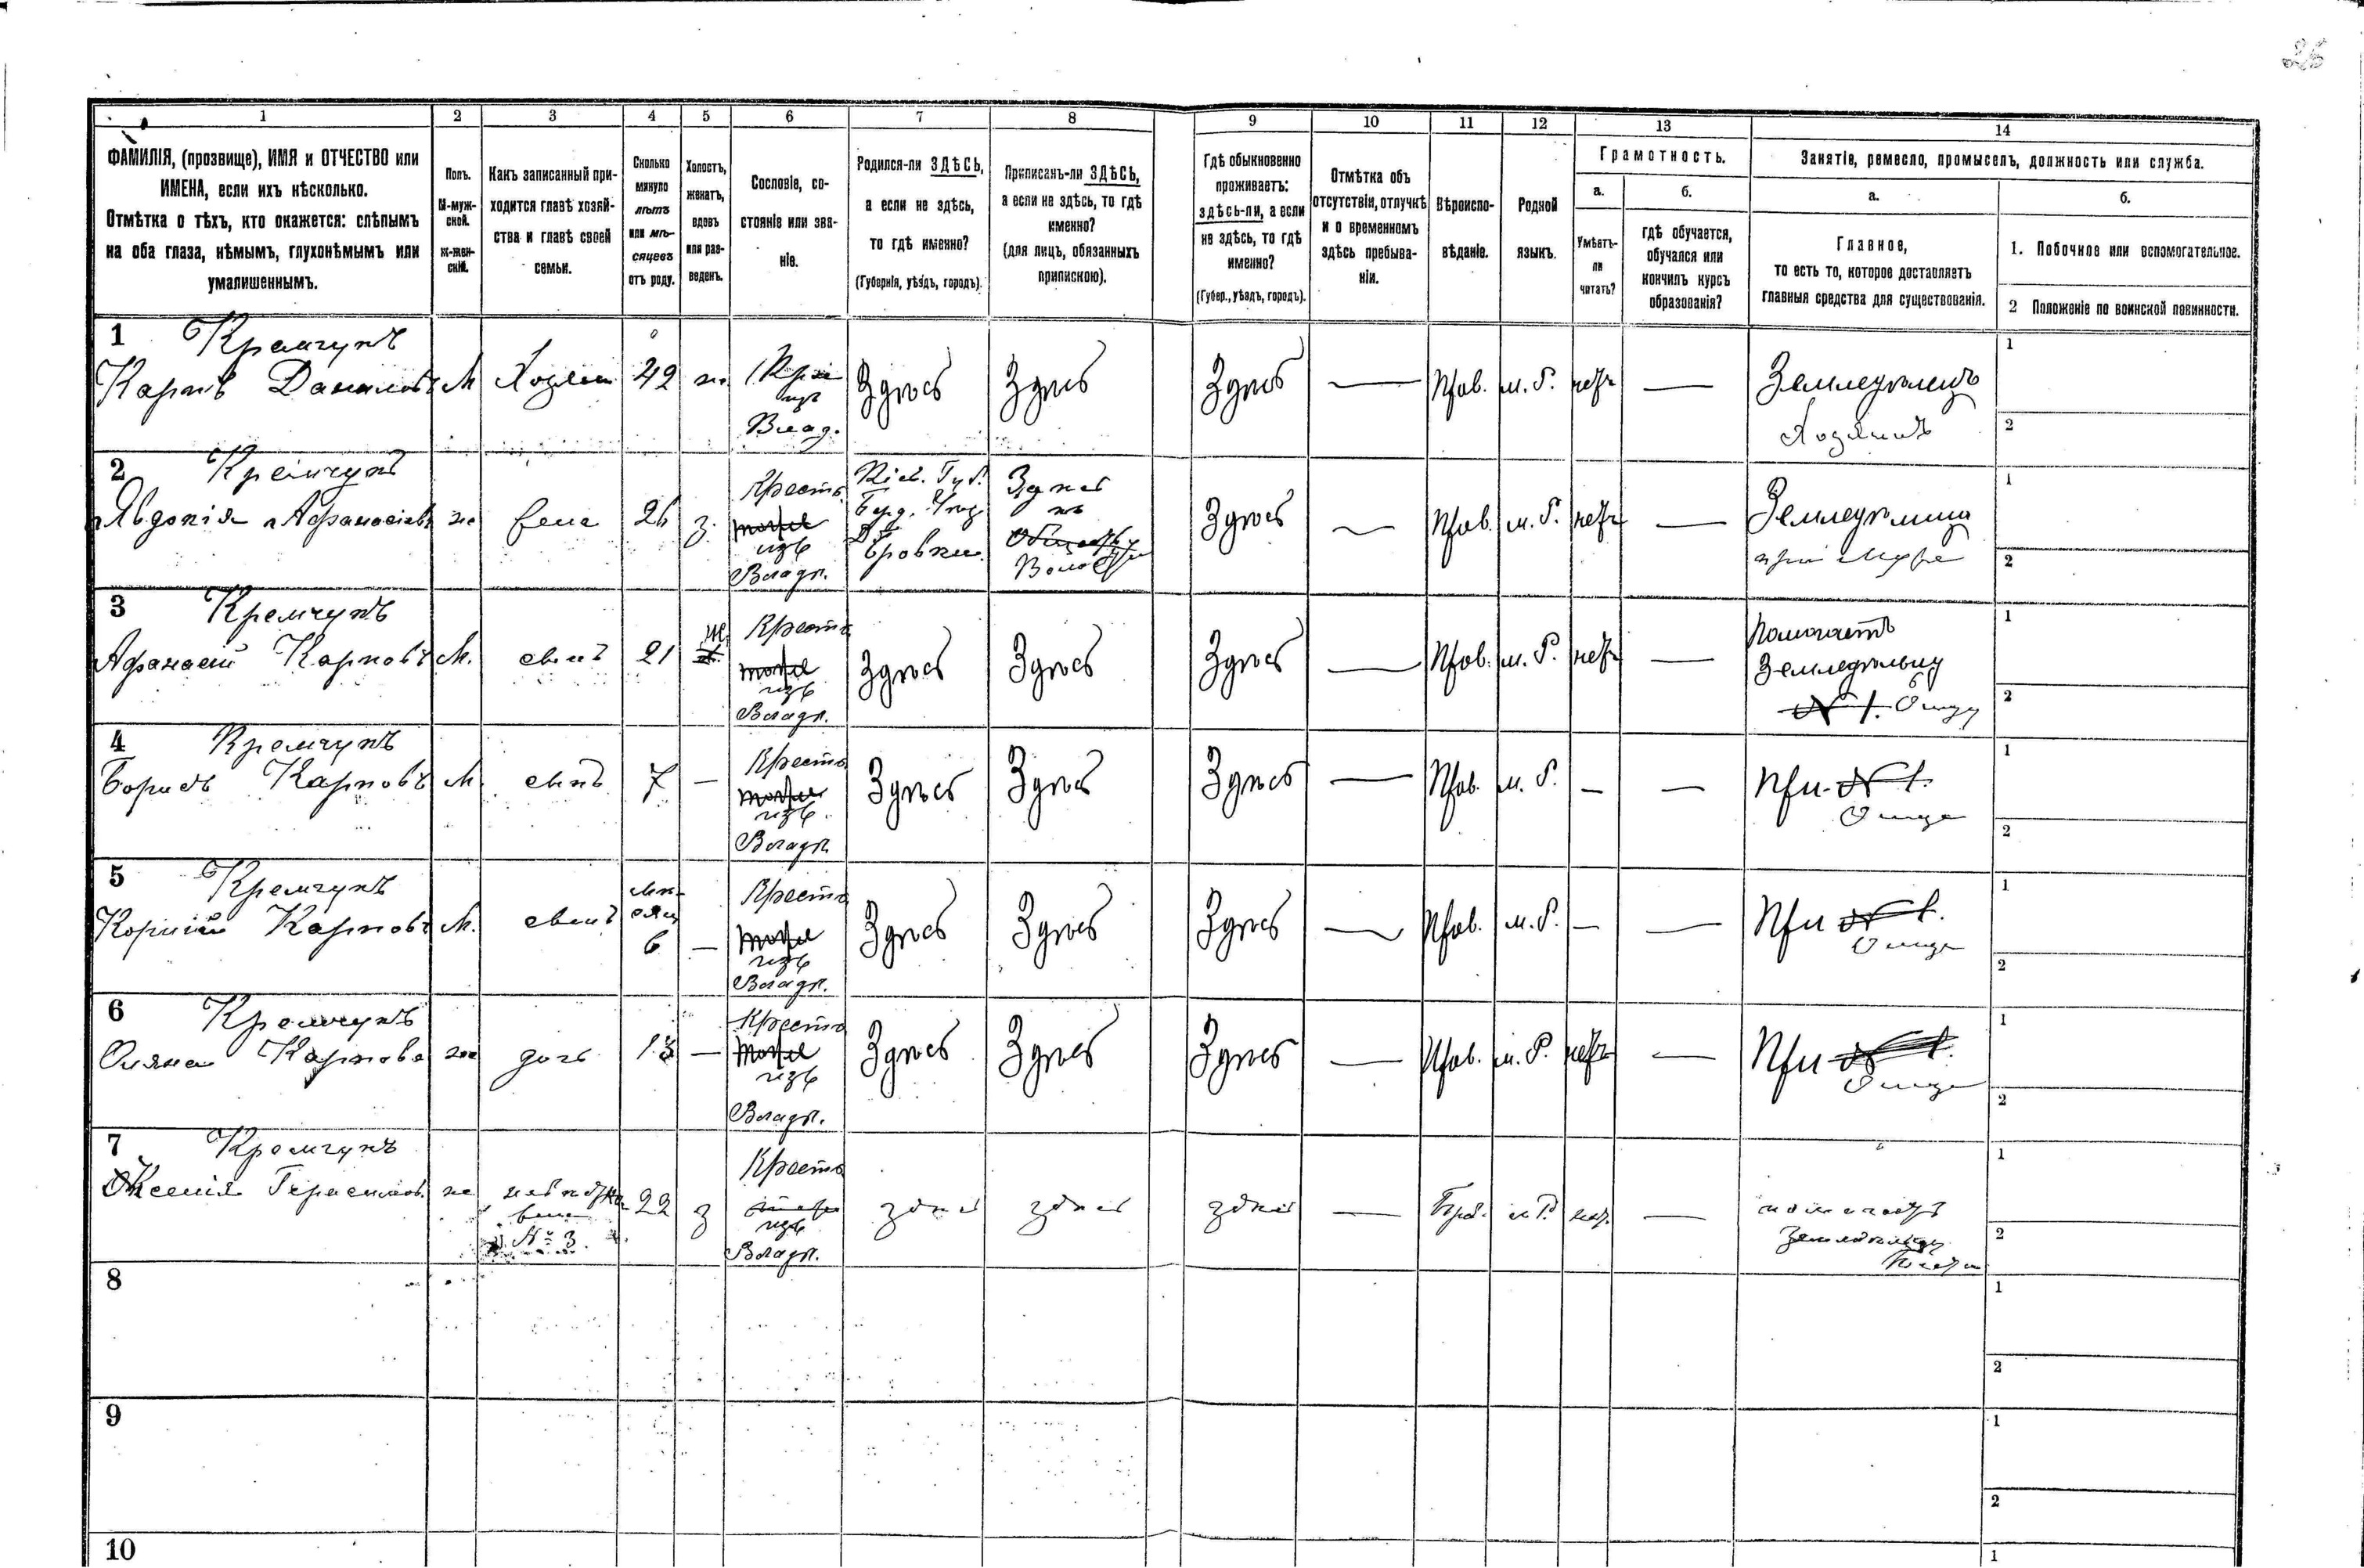 26
1 2 3 4 5 6 7 8 9 10 11 12 13 14
ФАМИЛІЯ, (прозвище), ИМЯ и ОТЧЕСТВО или
ИМЕНА, если ихъ нѣсколько.
Отмѣтка о тѣхъ, кто окажется: слѣпымъ
на оба глаза, нѣмымъ, глухонѣмымъ или
умалишеннымъ.
Полъ.
М-муж-
ской.
ж-жен-
скій.
Какъ записанный при-
ходится главѣ хозяй-
ства и главѣ своей
семьи.
Сколько
минуло
лѣтъ
или мѣ-
сяцевъ
отъ роду.
Холостъ,
женатъ,
вдовъ
или раз-
веденъ.
Сословіе, со-
стояніе или зва-
ніе.
Родился-ли ЗДѢСЬ,
а если не здѣсь,
то гдѣ именно?
(Губернія, уѣздъ, городъ).
Приписанъ-ли ЗДѢСЬ,
а если не здѣсь, то гдѣ
именно?
(для лицъ, обязанныхъ
припискою).
Гдѣ обыкновенно
проживаетъ:
здѣсь-ли, а если
не здѣсь, то гдѣ
именно?
(Губер., уѣздъ, городъ).
Отмѣтка объ
отсутствіи, отлучкѣ
и о временномъ
здѣсь пребыва-
ніи.
Вѣроиспо-
вѣданіе.
Родной
языкъ.
Грамотность.
а.
Умѣетъ-
ли
читать?
б.
гдѣ обучается,
обучался или
кончилъ курсъ
образованія?
Занятіе, ремесло, промыселъ, должность или служба.
а.
Главное,
то есть то, которое доставляетъ
главныя средства для существованія.
б.
1. Побочное или вспомогательное.
2 Положеніе по воинской повинности.
1 Кремчукъ
Карпъ Даниловъ М Хозяин 42 ж. Кре
изъ
Влад.
Здѣсь Здѣсь Здѣсь — Прав. м. Р. нетъ —
Земледѣлецъ
Хозяинъ
1
2
2 Кремчукъ
Явдокія Афанасіева ж жена 26 з.
Крестъ.
изъ
Владѣл.
Кіев. Губ.
Бровки
Здѣсь
Здѣсь — Прав. м. Р. нетъ —
Земледѣлица
при мужѣ
1
2
3 Кремчукъ
Афанасій Карповъ М. сынъ 21 ж.
Крестъ
изъ
Владѣл.
Здѣсь Здѣсь Здѣсь — Прав. м. Р. нетъ —
Помогаетъ
Земледѣльцу
№ 1. Отцу
1
2
4 Кремчукъ
Борисъ Карповъ М сынъ 7 —
Крестъ
изъ
Владѣл.
Здѣсь Здѣсь Здѣсь — Прав. м. Р. — —
При № 1.
Отце
1
2
5 Кремчукъ
Карповъ М. сынъ
6 —
Крестъ
изъ
Владѣл.
Здѣсь Здѣсь Здѣсь — Прав. м. Р. — —
При № 1.
Отце
1
2
6 Кремчукъ
Карпова ж дочь 13 —
Крестъ
изъ
Владѣл.
Здѣсь Здѣсь Здѣсь — Прав. м. Р. нетъ —
При № 1.
Отце
1
2
7 Кремчукъ
Ксенія Герасимов. ж невѣстка
жена
№ 3
22 з
Крестъ
изъ
Владѣл.
здѣсь здѣсь здѣсь — Прав. м Р. нет. —
помогаетъ
Земледѣльцу
1
2
8
1
2
9
1
2
10
1